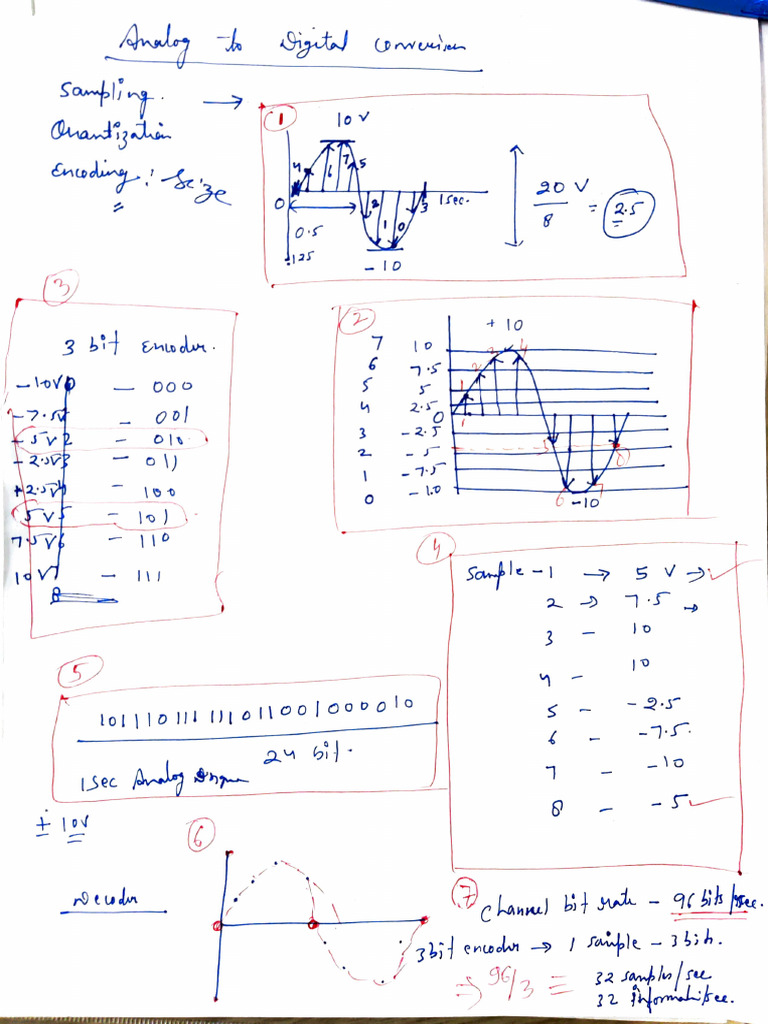 Analog to Digital Conversion
Sampling. →
Quantization
Encoding : Size
1
10 V
4 6 7 5
2 1 0 3
0
1 sec.
0.5
.125
-10
20 V
8
= 2.5
3
3 bit encoder.
-10V 0 - 000
-7.5V - 001
-5V 2 - 010
-2.5V 3 - 011
+2.5V 4 - 100
5V 5 - 101
7.5V 6 - 110
10V 7 - 111
8
2
+10
7 10
6 7.5
5 5
4 2.5
0
3 -2.5
2 -5
1 -7.5
0 -10
1 2 3 4
5 6 7 8
-10
4
Sample - 1 → 5 V →
2 → 7.5 →
3 - 10
4 - 10
5 - -2.5
6 - -7.5
7 - -10
8 - -5
5
101110111111011001000010
24 bit.
1 sec Analog
± 10V
6
Decoder
7.
Channel bit rate - 96 bits/sec.
3 bit encoder → 1 sample - 3 bit.
⇒ 96/3 = 32 samples/sec
32 Informati/sec.